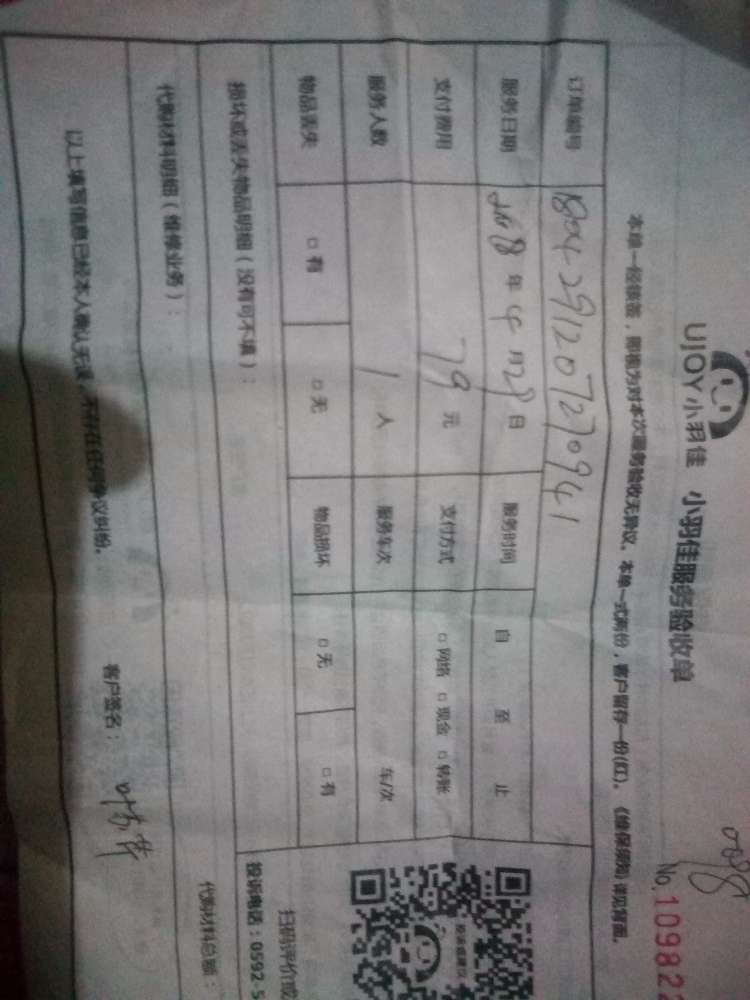 UJOY小羽佳 小羽佳服务验收单
No.10982
本单一经签签，即视为对本次服务验收无异议。本单一式两份，客户留存一份(红)。
订单编号 1804291207270941
服务日期 年 4月29日 服务时间 自 至 止
支付费用 79元 支付方式 □网络 □现金 □转账
服务人数 1人 服务车次 车/次
物品丢失 □有 □无 物品损坏 □无 □有
损坏或丢失物品明细（没有可不填）：
代购材料明细（维修业务）： 代购材料总额：
以上填写信息已经本人确认无误，不存在任何争议纠纷。 客户签名：
扫码评价或
投诉电话：0592-5